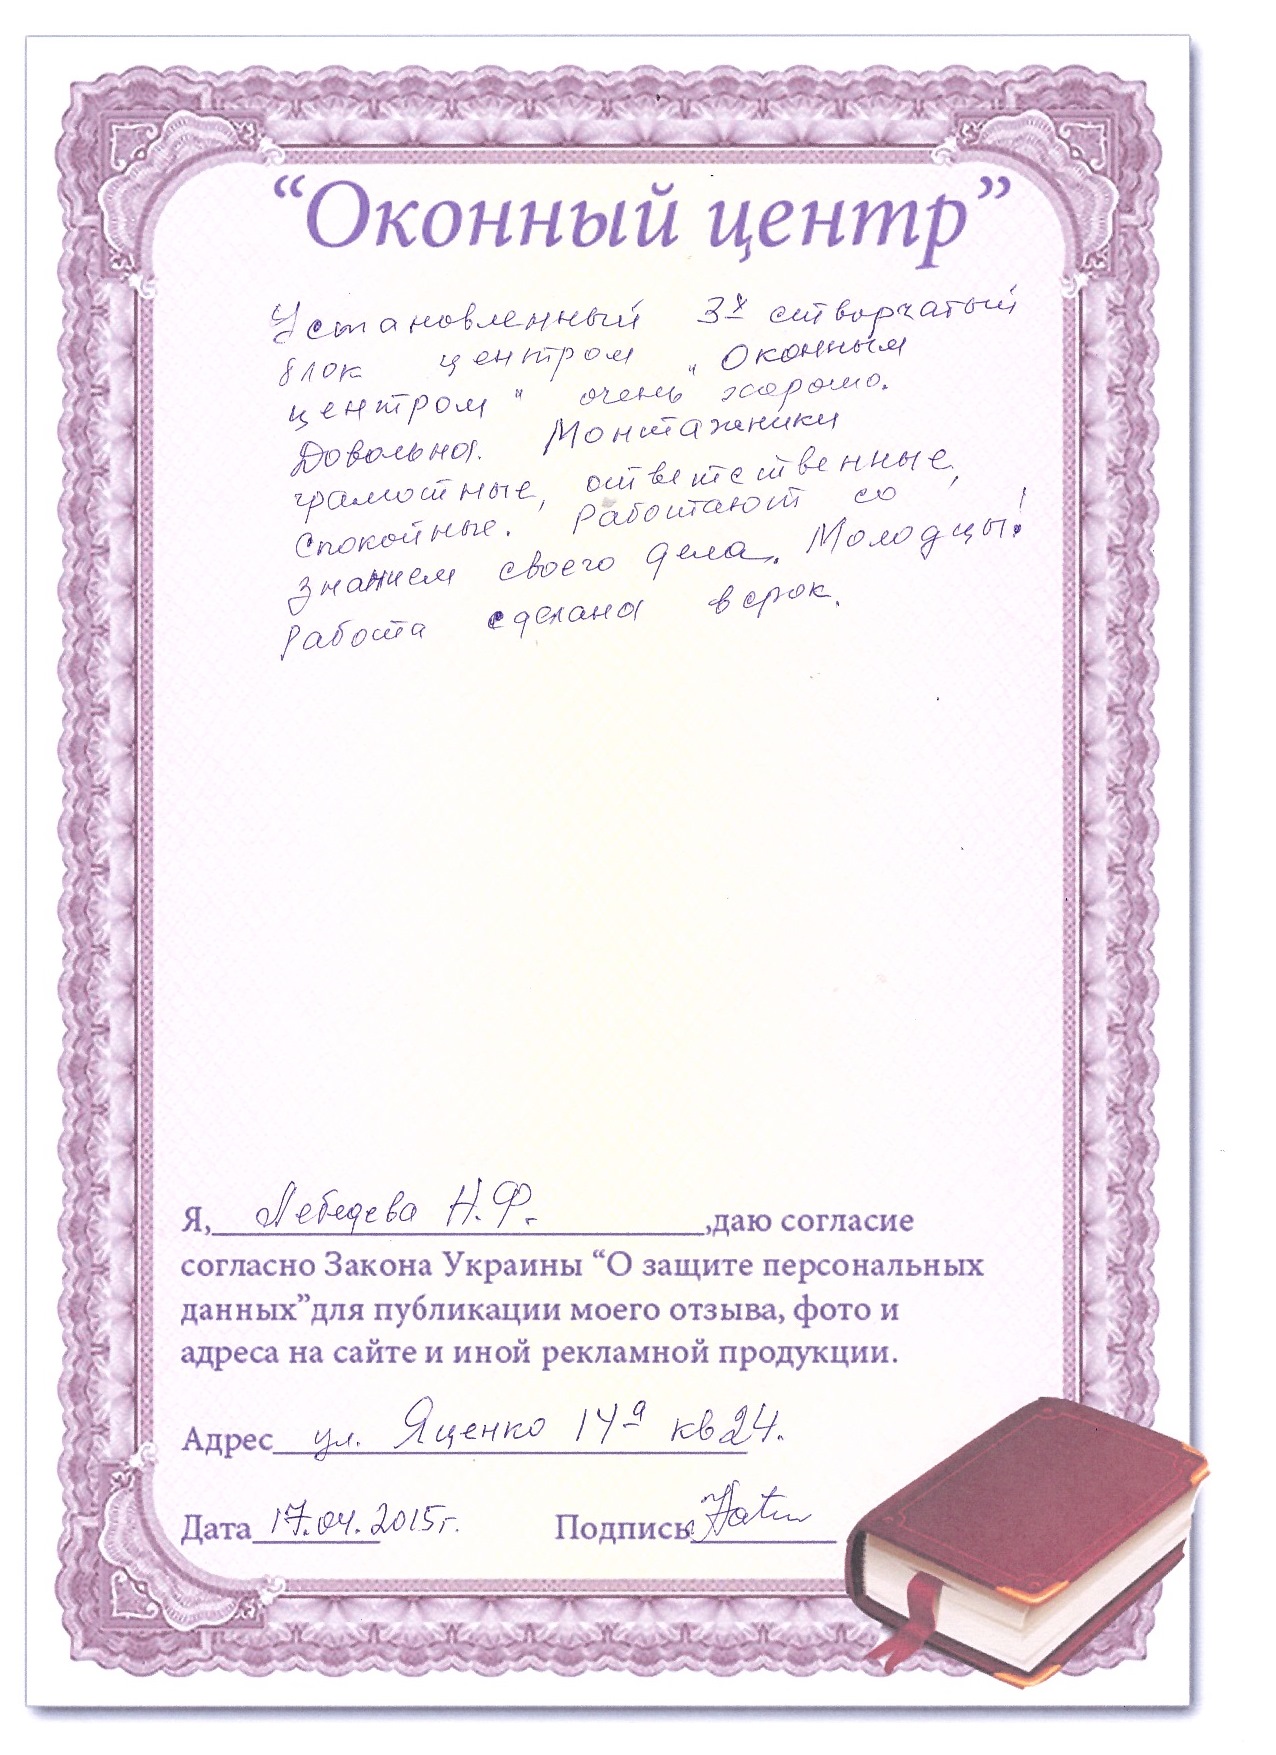 “Оконный центр”
Установленный 3х створчатый
блок центром „Оконным
центром" очень хорошо.
Довольна. Монтажники
грамотные, ответственные,
спокойные. Работают со
знанием своего дела. Молодцы!
Работа сделана в срок.
Я, Лебедева Н.Ф. ,даю согласие
согласно Закона Украины “О защите персональных
данных”для публикации моего отзыва, фото и
адреса на сайте и иной рекламной продукции.
Адрес ул. Яценко 14а кв 24.
Дата 17.04.2015г. Подпись